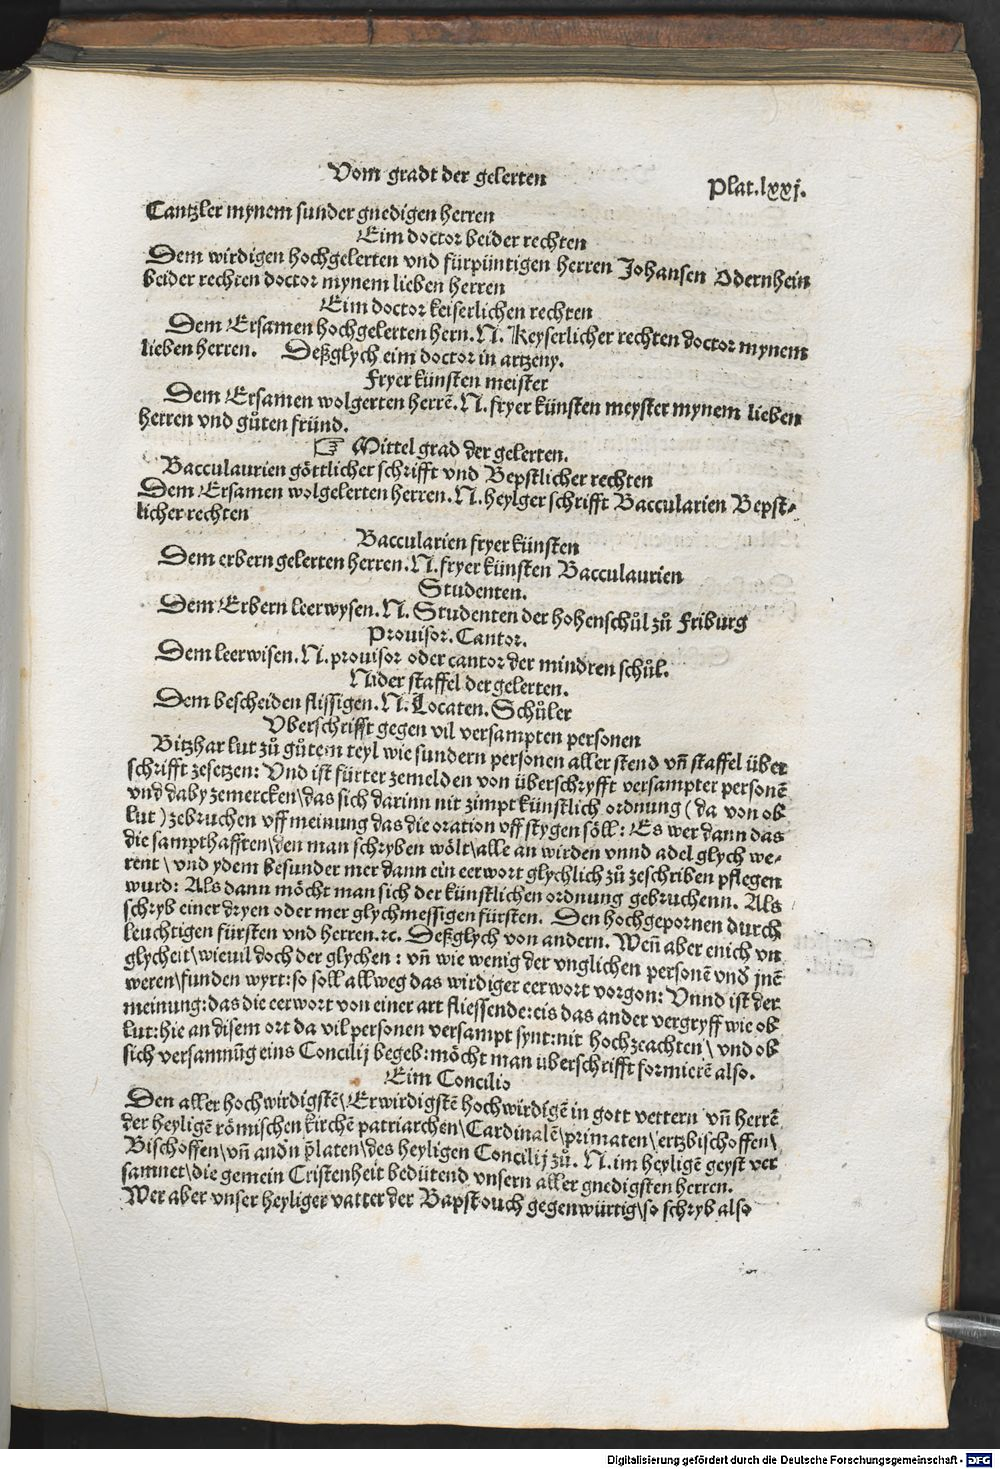 Vom gradt der gelerten
Plat.lxxj.
Cantzler mynem sunder gnedigen herren
Eim doctor beider rechten
Dem wirdigen hochgelerten vnd fürpüntigen herren Johansen Odernhein
beider rechten doctor mynem lieben herren
Eim doctor keiserlichen rechten
Dem Ersamen hochgelerten hern. N. Keyserlicher rechten doctor mynem
lieben herren. Deßglych eim doctor in artzeny.
Fryer künsten meister
Dem Ersamen wolgerten herrē. N. fryer künsten meyster mynem lieben
herren vnd gůten fründ.
☞ Mittel grad der gelerten.
Bacculaurien göttlicher schrifft vnd Bepstlicher rechten
Dem Ersamen wolgelerten herren. N. heylger schrifft Baccularien Bepst-
licher rechten
Baccularien fryer künsten
Dem erbern gelerten herren. N. fryer künsten Bacculaurien
Studenten.
Dem Erbern leerwysen. N. Studenten der hohenschůl zů Friburg
Prouisor. Cantor.
Dem leerwisen. N. prouisor oder cantor der mindren schůl.
Nider staffel der gelerten.
Dem bescheiden flissigen. N. Locaten. Schůler
Vberschrifft gegen vil versampten personen
Bitzhar lut zů gůtem teyl wie sundern personen aller stend vñ staffel über
schrifft zesetzen: Vnd ist fürter zemelden von überschryfft versampter personē
vnd daby zemercken\das sich darinn nit zimpt künstlich ordnung (da von ob
lut) zebruchen vff meinung das die oration vff stygen söll: Es wer dann das
die sampthafften\den man schryben wölt\alle an wirden vnnd adel glych we-
rent\vnd ydem besunder mer dann ein eerwort glychlich zů zeschriben pflegen
wurd: Als dann möcht man sich der künstlichen ordnung gebruchenn. Als
schryb einer dryen oder mer glychmessigen fürsten. Den hochgepornen durch
leuchtigen fürsten vnd herren.ꝛc. Deßglych von andern. Weñ aber enich vn
glycheit\wieuil doch der glychen: vñ wie wenig der vnglichen personē vnd̄ jnē
weren\funden wyrt: so soll allweg das wirdiger eerwort vorgon: Vnnd ist der
meinung: das die eerwort von einer art fliessende: eis das ander vergryff wie ob
lut: hie an disem ort da vil personen versampt synt: nit hochzeachten\vnd ob
sich versamnūg eins Concilij begeb: möcht man überschrifft formierē also.
Eim Concilio
Den aller hochwirdigstē\Erwirdigstē hochwirdigē in gott vettern vñ herrē
der heyligē römischen kirchē patriarchen\Cardinalē\primaten\ertzbischoffen\
Bischoffen\vñ andn̄ p̄laten\des heyligen Concilij zů. N. im heyligē geyst ver
samnet\die gemein Cristenheit bedütend vnsern aller gnedigsten herren.
Wer aber vnser heyliger vatter der Bapst ouch gegenwürtig\so schryb also
Digitalisierung gefördert durch die Deutsche Forschungsgemeinschaft - DFG